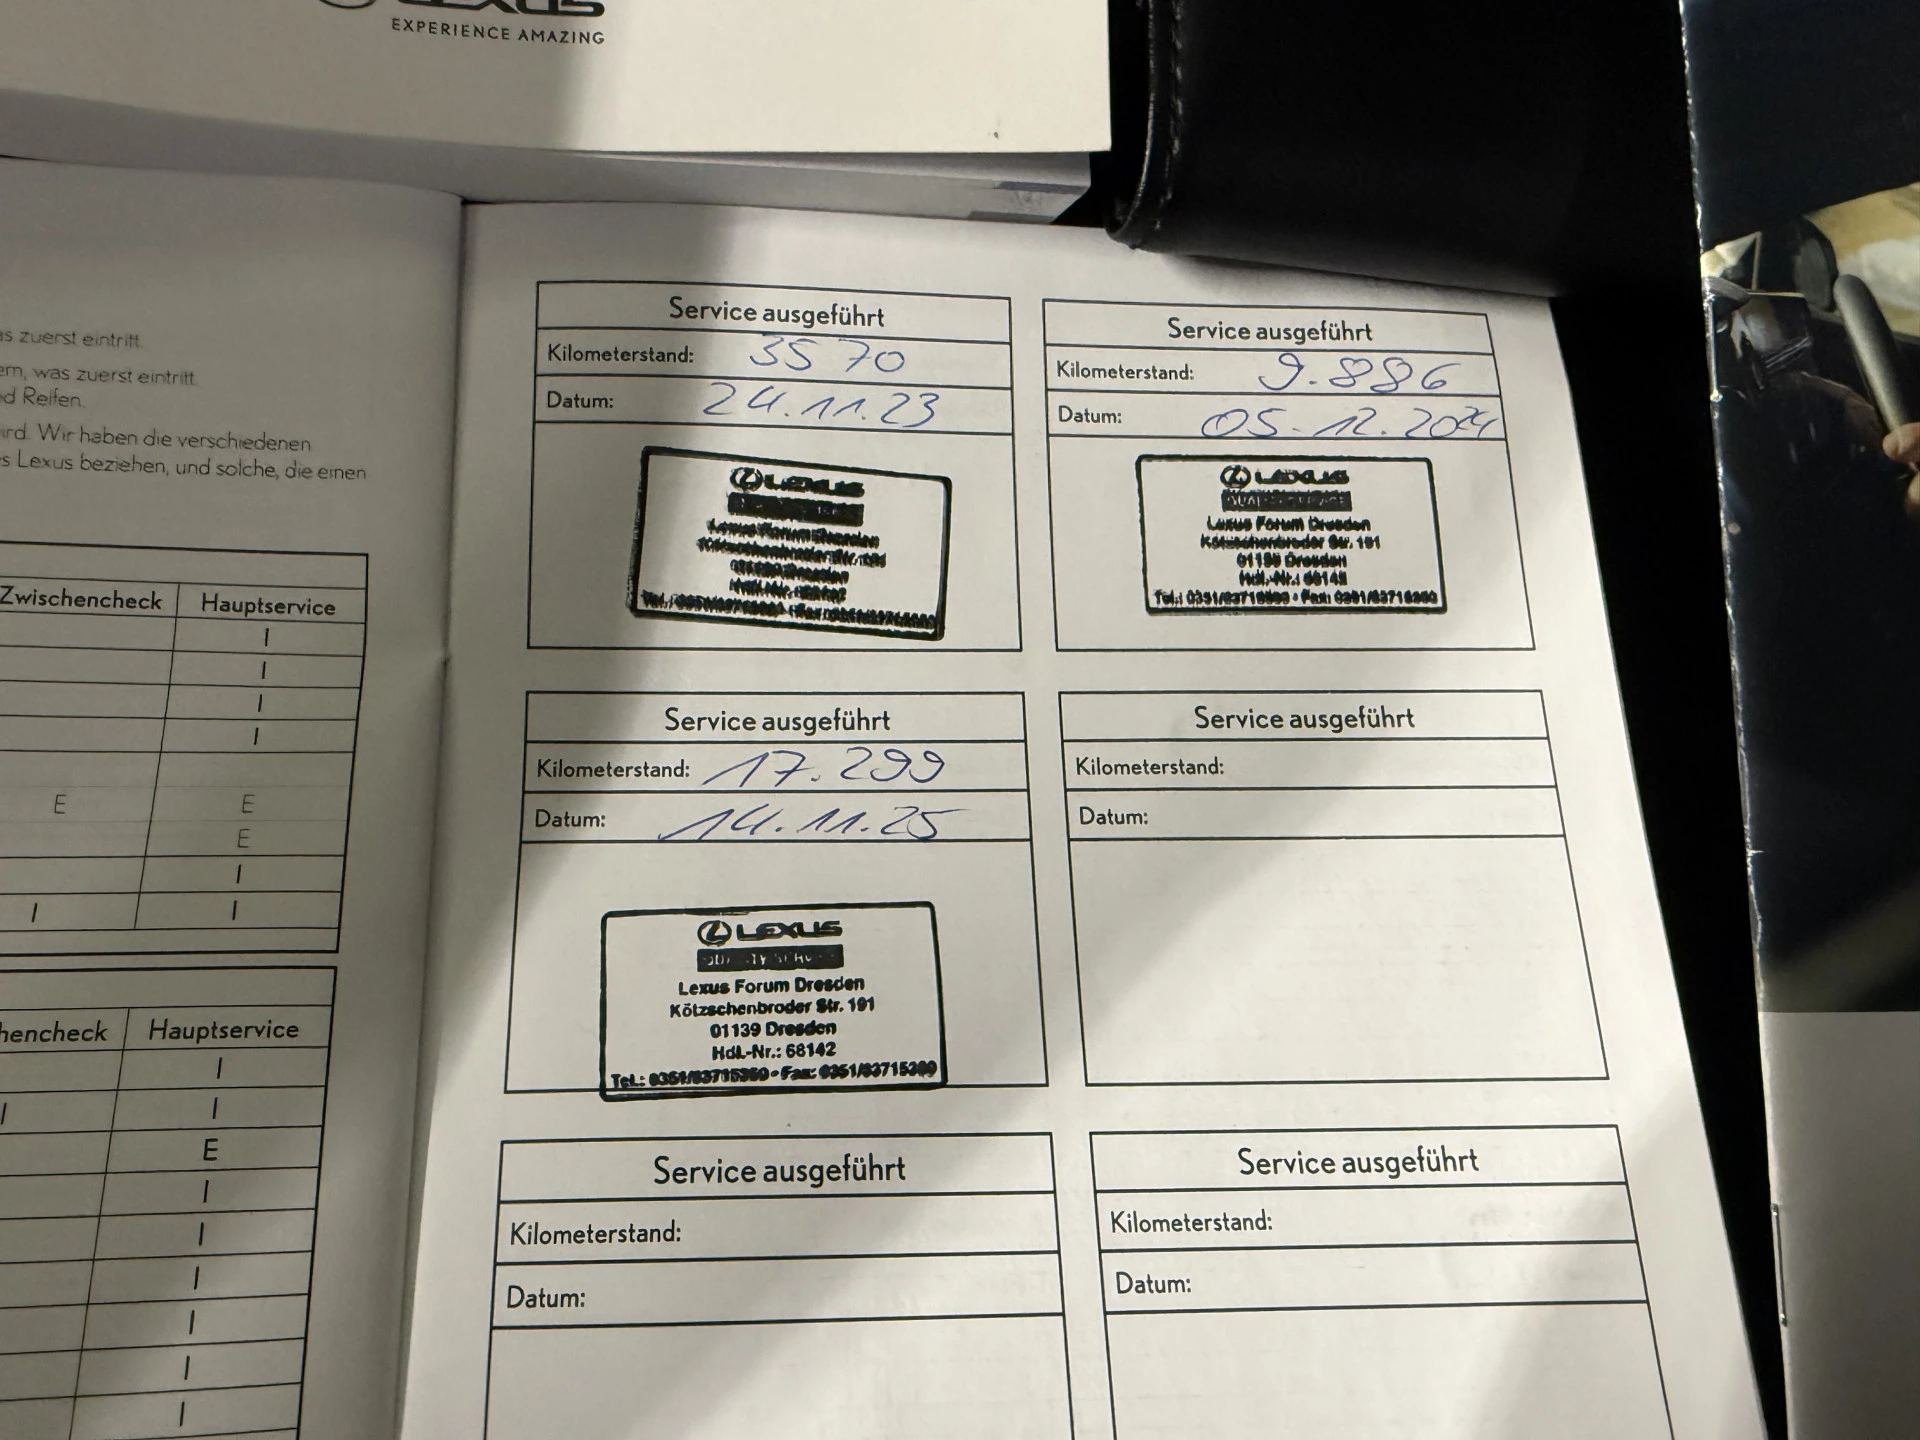 LEXUS
EXPERIENCE AMAZING
as zuerst eintritt.
em, was zuerst eintritt.
d Reifen.
ird. Wir haben die verschiedenen
s Lexus beziehen, und solche, die einen
Zwischencheck Hauptservice
I
I
I
I
E E
E
I
I I
hencheck Hauptservice
I
I I
E
I
I
I
I
I
I
Service ausgeführt
Kilometerstand: 3570
Datum: 24.11.23
LEXUS
Lexus Forum Dresden
Kötzschenbroder Str. 191
01139 Dresden
Service ausgeführt
Kilometerstand: 9.886
Datum: 05.12.2024
LEXUS
QUALITY SERVICE
Lexus Forum Dresden
Kötzschenbroder Str. 191
01139 Dresden
Hdl.-Nr.: 68142
Service ausgeführt
Kilometerstand: 17.299
Datum: 14.11.25
LEXUS
QUALITY SERVICE
Lexus Forum Dresden
Kötzschenbroder Str. 191
01139 Dresden
Hdl.-Nr.: 68142
Service ausgeführt
Kilometerstand:
Datum:
Service ausgeführt
Kilometerstand:
Datum:
Service ausgeführt
Kilometerstand:
Datum: